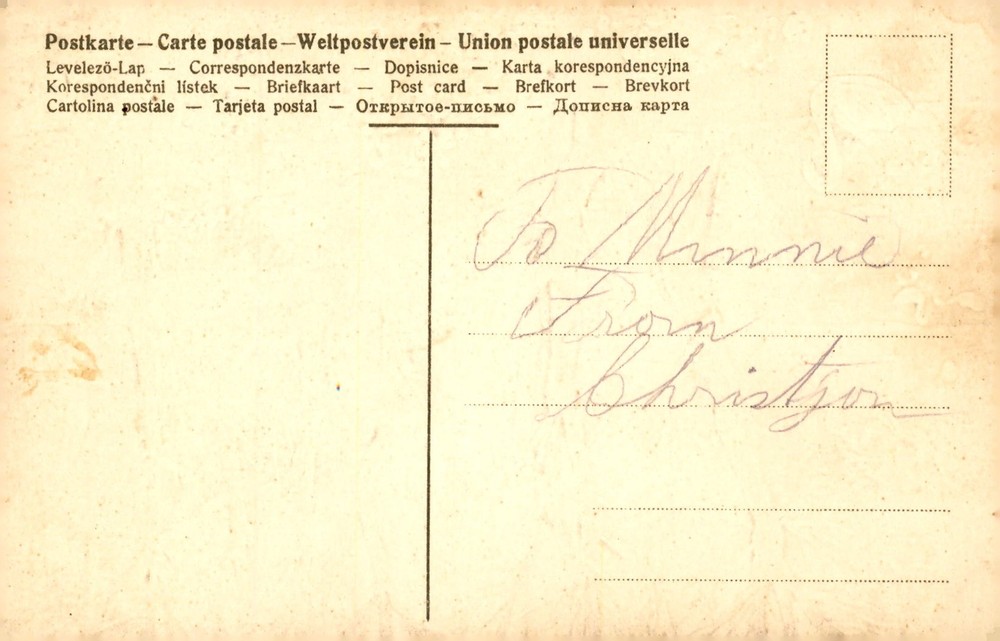 Postkarte – Carte postale – Weltpostverein – Union postale universelle
Levelező-Lap — Correspondenzkarte — Dopisnice — Karta korespondencyjna
Korespondenční lístek — Briefkaart — Post card — Brefkort — Brevkort
Cartolina postale — Tarjeta postal — Открытое-письмо — Дописна карта
To Minnie
From
Christjon